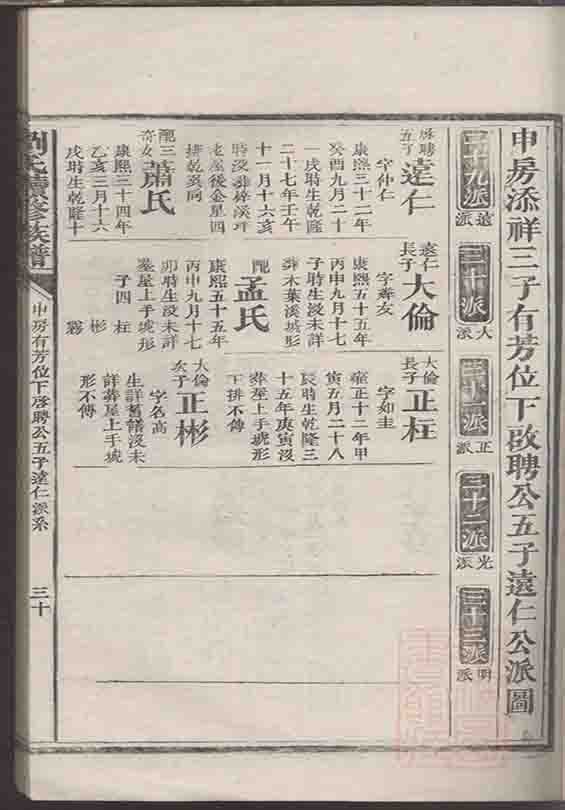 申房添祥三子有芳位下啟聘公五子遠仁公派圖
二十九派
遠派
三十派
大派
三十一派
正派
三十二派
光派
三十三派
明派
啟聘五子
遠仁
字仲仁
康熙三十二年
癸酉九月二十
一戌時生乾隆
二十七年壬午
十一月十六亥
時沒葬梓溪坪
老屋後金星四
排乾巽向
配三
奇女
蕭氏
康熙三十四年
乙亥三月十六
戌時生乾隆十
遠仁長子
大倫
字舜女
康熙五十五年
丙申九月十七
子時生沒未詳
葬木葉溪城形
配
孟氏
康熙五十五年
丙申九月十七
卯時生沒未詳
墓屋上手琥形
子四 柱
彬
大倫長子
正柱
字如圭
雍正十二年甲
寅五月二十八
辰時生乾隆三
十五年庚寅沒
葬屋上手琥形
下排不傳
大倫次子
正彬
字名高
生詳舊譜沒未
詳葬屋上手琥
形不傳
劉氏續修族譜
申房有芳位下啟聘公五子遠仁派系
三十